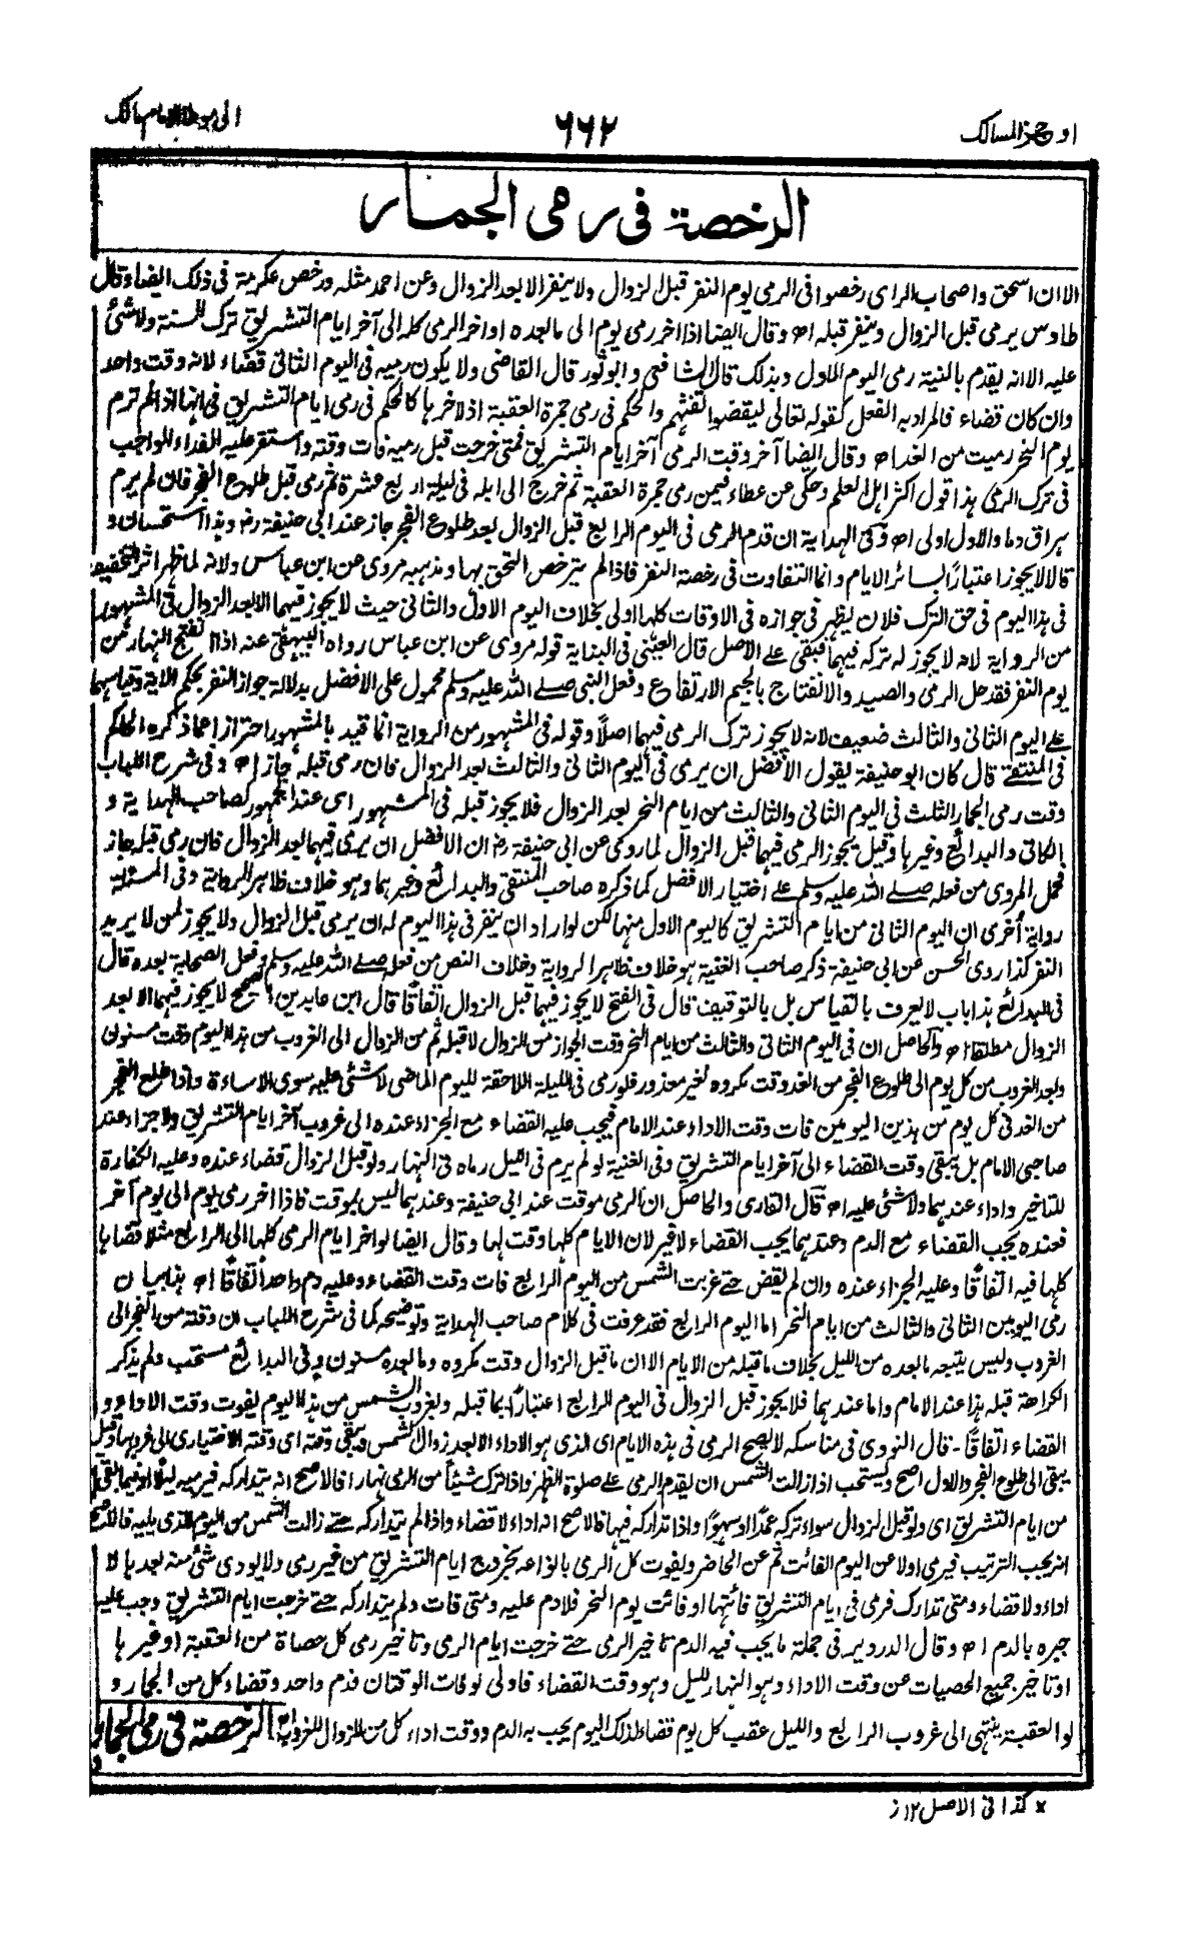 اوجز المسالك
٦٦٢
الى موطا الامام مالك
الرخصة فى رمى الجمار
الا ان اسحق واصحاب الراى رخصوا فى الرمى يوم النفر قبل لزوال ولا ينفر الا بعد الزوال وعن احمد مثله ورخص عكرمة فى ذلك ايضاء وقال
طاوس يرمى قبل الزوال وينفر قبله اھ وقال ايضا اذا اخر رمى يوم الى ما بعده او اخر الرمى كله الى آخر ايام التشريق ترك السنة ولا شئ
عليه الا انه يقدم بالنية رمى اليوم الاول وبذلك قال الشافعى وابو ثور قال القاضى ولا يكون رميه فى اليوم الثانى قضاء لانه وقت واحد
وان كان قضاء فالمراد به الفعل كقوله تعالى ليقضوا تفثهم والحكم فى رمى جمرة العقبة اذا اخرها كالحكم فى رمى ايام التشريق فى انها اذا لم ترم
يوم النحر رميت من الغد اھ وقال ايضا آخر وقت الرمى آخر ايام التشريق فمتى خرجت قبل رميه فات وقته واستقر عليه الفداء الواجب
فى ترك الرمى هذا قول اكثر اہل العلم وحكى عن عطاء فيمن رمى جمرة العقبة ثم خرج الى ابله فى ليلة اربع عشرة ثم رمى قبل طلوع الفجر فان لم يرم
ہراق دما والاول اولى اھ وفى الهداية ان قدم الرمى فى اليوم الرابع قبل الزوال بعد طلوع الفجر جاز عند ابى حنيفة رضہ وہذا استحسان و
قالا لا يجوز اعتبارًا بسائر الايام وانما التفاوت فى رخصة النفر فاذا لم يترخص التحق بها ومذہبہ مروى عن ابن عباس ولانه لما ظهر اثر التخفيف
فى ہذا اليوم فى حق الترك فلان يظهر فى جوازه فى الاوقات كلها اولى بخلاف اليوم الاول والثانى حيث لا يجوز فيهما الا بعد الزوال فى المشہور
من الرواية لانه لا يجوز له تركه فيهما فبقى على الاصل قال العينى فى البناية قوله مروى عن ابن عباس رواه البيہقى عنه اذا انفتح النہار من
يوم النفر فقد حل الرمى والصيد والانفتاج بالجيم الارتفاع وفعل النبى صلے اللہ علیہ وسلم محمول على الافضل بدلالة جواز النفر بحكم الآية وقياسہما
علے اليوم الثانى والثالث ضعيف لانه لا يجوز ترك الرمى فيهما اصلًا وقوله فى المشہور من الرواية انما قيد بالمشہور احترازا عما ذكره الحاكم
فى المنتقے قال كان ابو حنيفة يقول الافضل ان يرمى فى اليوم الثانى والثالث بعد الزوال فان رمى قبله جاز اھ وفى شرح اللباب
وقت رمى الجمار الثلث فى اليوم الثانى والثالث من ايام النحر بعد الزوال فلا يجوز قبله فى المشہور اى عند الجمہور كصاحب الہداية و
الكافى والبدائع وغيرہا وقيل يجوز الرمى فيهما قبل الزوال لما روى عن ابى حنيفة رضہ ان الافضل ان يرمى فيهما بعد الزوال فان رمى قبله جاز
فحمل المروى من فعله صلے اللہ علیہ وسلم علے اختيار الافضل كما ذكره صاحب المنتقى والبدائع وغيرہما وہو خلاف ظاہر الرواية وفى المسئلة
رواية اُخرى ان اليوم الثانى من ايام التشريق كاليوم الاول منہا لكن لو اراد ان ينفر فى ہذا اليوم له ان يرمى قبل الزوال ولا يجوز لمن لا يريد
النفر كذا روى الحسن عن ابى حنيفة ذكر صاحب الغنية ہو خلاف ظاہر الرواية وخلاف النص من فعله صلے اللہ علیہ وسلم وفعل الصحابة بعده قال
فى البدائع ہذا باب لا يعرف بالقياس بل بالتوقيف قال فى الفتح لا يجوز فيهما قبل الزوال اتفاقًا قال ابن عابدين الصحيح لا يجوز فيهما الا بعد
الزوال مطلقا اھ والحاصل ان فى اليوم الثانى والثالث من ايام النحر وقت الجواز من الزوال لا قبله ثم من الزوال الى الغروب من ہذا اليوم وقت مسنون
وبعد الغروب من كل يوم الى طلوع الفجر من الغد وقت مكروه لغير معذور فلو رمى فى الليلة اللاحقة لليوم الماضى لا شئى عليه سوى الاساءة واذا طلع الفجر
من الغد فى كل يوم من ہذين اليومين فات وقت الاداء عند الامام فيجب عليه القضاء مع الجزاء عنده الى غروب آخر ايام التشريق ولا جزاء عند
صاحبى الامام بل يبقى وقت القضاء الى آخر ايام التشريق وفى الغنية لو لم يرم فى الليل رماه فى النہار ولو قبل الزوال قضاء عنده وعليه الكفارة
للتاخير واداء عندہما ولا شئى عليه اھ قال القارى والحاصل ان الرمى موقت عند ابى حنيفة وعندہما ليس بموقت فاذا اخر رمى يوم الى يوم آخر
فعنده يجب القضاء مع الدم وعندہما يجب القضاء لا غير لان الايام كلها وقت لہا وقال ايضا لو اخر ايام الرمى كلها الى الرابع مثلا قضاہا
كلہا فيه اتفاقًا وعليه الجزاء عنده وان لم يقض حتے غربت الشمس من اليوم الرابع فات وقت القضاء وعليه دم واحد اتفاقًا اھ ہذا بيان
رمى اليومين الثانى والثالث من ايام النحر اما اليوم الرابع فقد عرفت فى كلام صاحب الہداية وتوضيحه كما فى شرح اللباب ان وقته من الفجر الى
الغروب وليس يتبعه ما بعده من الليل بخلاف ما قبله من الايام الا ان ما قبل الزوال وقت مكروه وما بعده مسنون وفى البدائع مستحب ولم يذكر
الكراهة قبله ہذا عند الامام واما عندہما فلا يجوز قبل الزوال فى اليوم الرابع اعتبارًا بما قبله وبغروب الشمس من ہذا اليوم يفوت وقت الاداء و
القضاء اتفاقًا - قال النووى فى مناسكه لا يصح الرمى فى ہذه الايام اى الذى ہو الاداء الا بعد زوال الشمس ويبقى وقته اى وقته الاختيارى الى غروبہا وقيل
يبقى الى طلوع الفجر والاول اصح ويستحب اذا زالت الشمس ان يقدم الرمى على صلوة الظہر واذا ترك شيئًا من الرمى نہارا فالاصح انه يتداركه فيرميه ليلًا او فيما بقى
من ايام التشريق اى ولو قبل لزوال سواء تركه عمدًا او سہوًا واذا تداركه فيهما فالاصح انه اداء لا قضاء واذا لم يتداركه حتے زالت الشمس من اليوم الذى يليه فالاصح
انه يجب الترتيب فيرمى اولا عن اليوم الفائت ثم عن الحاضر ويفوت كل الرمى بانواعه بخروج ايام التشريق من غير رمى ولا يودى شئ منه بعدہا لا
اداء ولا قضاء ومتى تدارك فرمى فى ايام التشريق فائتہا او فائت يوم النحر فلا دم عليه ومتى فات ولم يتداركه حتے خرجت ايام التشريق وجب عليه
جبره بالدم اھ وقال الدردير فى جملة ما يجب فيه الدم تاخير الرمى حتے خرجت ايام الرمى وتاخير رمى كل حصاة من العقبة او غيرہا
او تاخير جميع الحصيات عن وقت الاداء وہو النہار لليل وہو وقت القضاء فاولى لو فات الوقتان فدم واحد وقضاء كل من الجمار و
لو العقبة ينتہى الى غروب الرابع والليل عقب كل يوم قضاء لذلك اليوم يجب به الدم ووقت اداء كل من الزوال للغروب اھ الرخصة فى رمى الجمار
× كذا فى الاصل ١٢ ز